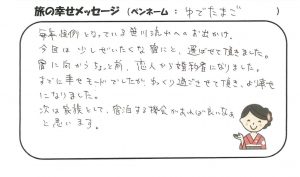 旅の幸せメッセージ (ペンネーム : ゆでたまご )
毎年恒例となっている笹川流れへのお出かけ。
今回は少しぜいたくな宿にと、選ばせて頂きました。
宿に向かうちょっと前、恋人から婚約者になりました。
すでに幸せモードでしたが、ゆっくり過ごさせて頂き、より幸せ
になりました。
次は家族として、宿泊する機会があれば良いなぁ
と思います。